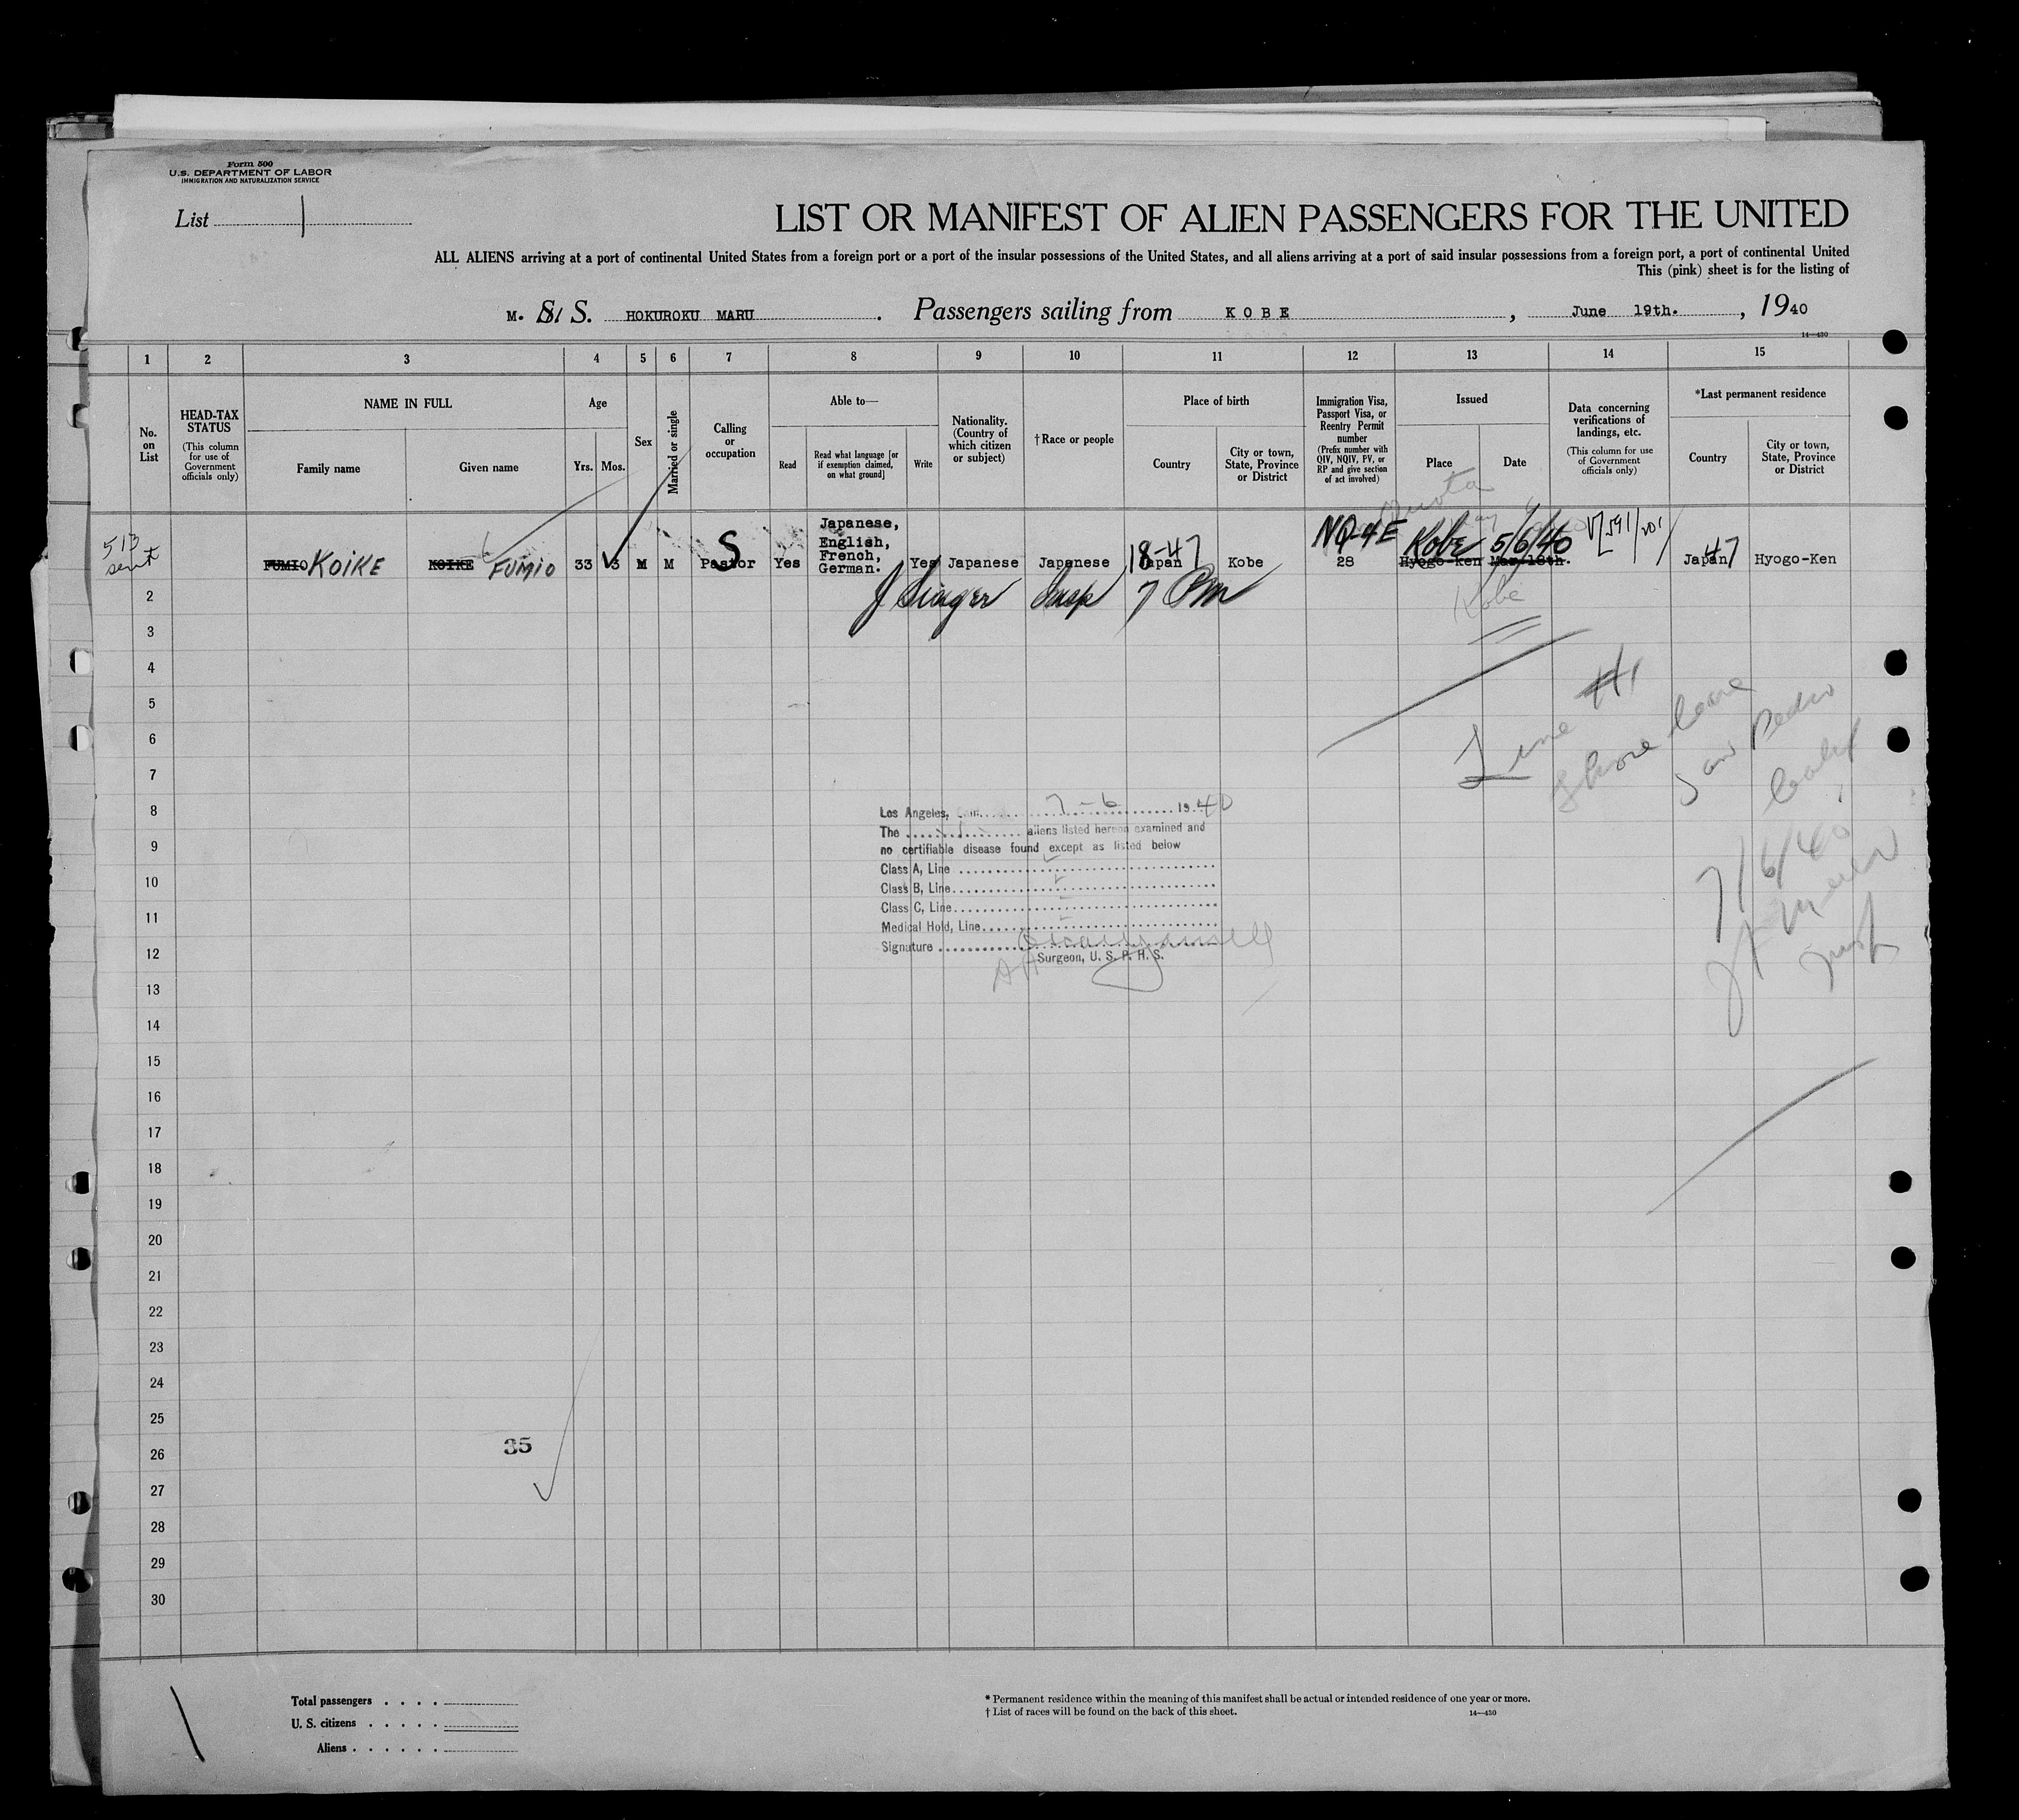 Form 500
U.S. DEPARTMENT OF LABOR
IMMIGRATION AND NATURALIZATION SERVICE
List 1
LIST OR MANIFEST OF ALIEN PASSENGERS FOR THE UNITED
ALL ALIENS arriving at a port of continental United States from a foreign port or a port of the insular possessions of the United States, and all aliens arriving at a port of said insular possessions from a foreign port, a port of continental United
This (pink) sheet is for the listing of
M. S. S. HOKUROKU MARU. Passengers sailing from KOBE, June 19th., 1940
14—430
1 2 3 4 5 6 7 8 9 10 11 12 13 14 15
No. on List
HEAD-TAX STATUS
(This column for use of Government officials only)
NAME IN FULL
Family name
Given name
Age
Yrs.
Mos.
Sex
Married or single
Calling or occupation
Able to—
Read
Read what language [or if exemption claimed, on what ground]
Write
Nationality. (Country of which citizen or subject)
†Race or people
Place of birth
Country
City or town, State, Province or District
Immigration Visa, Passport Visa, or Reentry Permit number
(Prefix number with QIV, NQIV, PV, or RP and give section of act involved)
Issued
Place
Date
Data concerning verifications of landings, etc.
(This column for use of Government officials only)
*Last permanent residence
Country
City or town, State, Province or District
Quota
513 sent
FUMIO KOIKE KOIKE FUMIO 33 3 M M S Pastor Yes Japanese, English, French, German. Yes Japanese Japanese 18-47 Japan Kobe NQ-4E 28 Kobe 5/6/40 Hyogo-Ken Mar/18th. Japan 47 Hyogo-Ken
J Singer Insp 7 PM
Kobe
2
3
4
5
6
7
8
9
10
11
12
13
14
15
16
17
18
19
20
21
22
23
24
25
26
27
28
29
30
Line #1
Shore leave
San Pedro
Calif
7/6/40
Los Angeles, 7-6 1940
The aliens listed hereon examined and
no certifiable disease found except as listed below
Class A, Line
Class B, Line
Class C, Line
Medical Hold, Line
Signature
Surgeon, U. S. P. H. S.
35
Total passengers
U. S. citizens
Aliens
* Permanent residence within the meaning of this manifest shall be actual or intended residence of one year or more.
† List of races will be found on the back of this sheet.
14—430